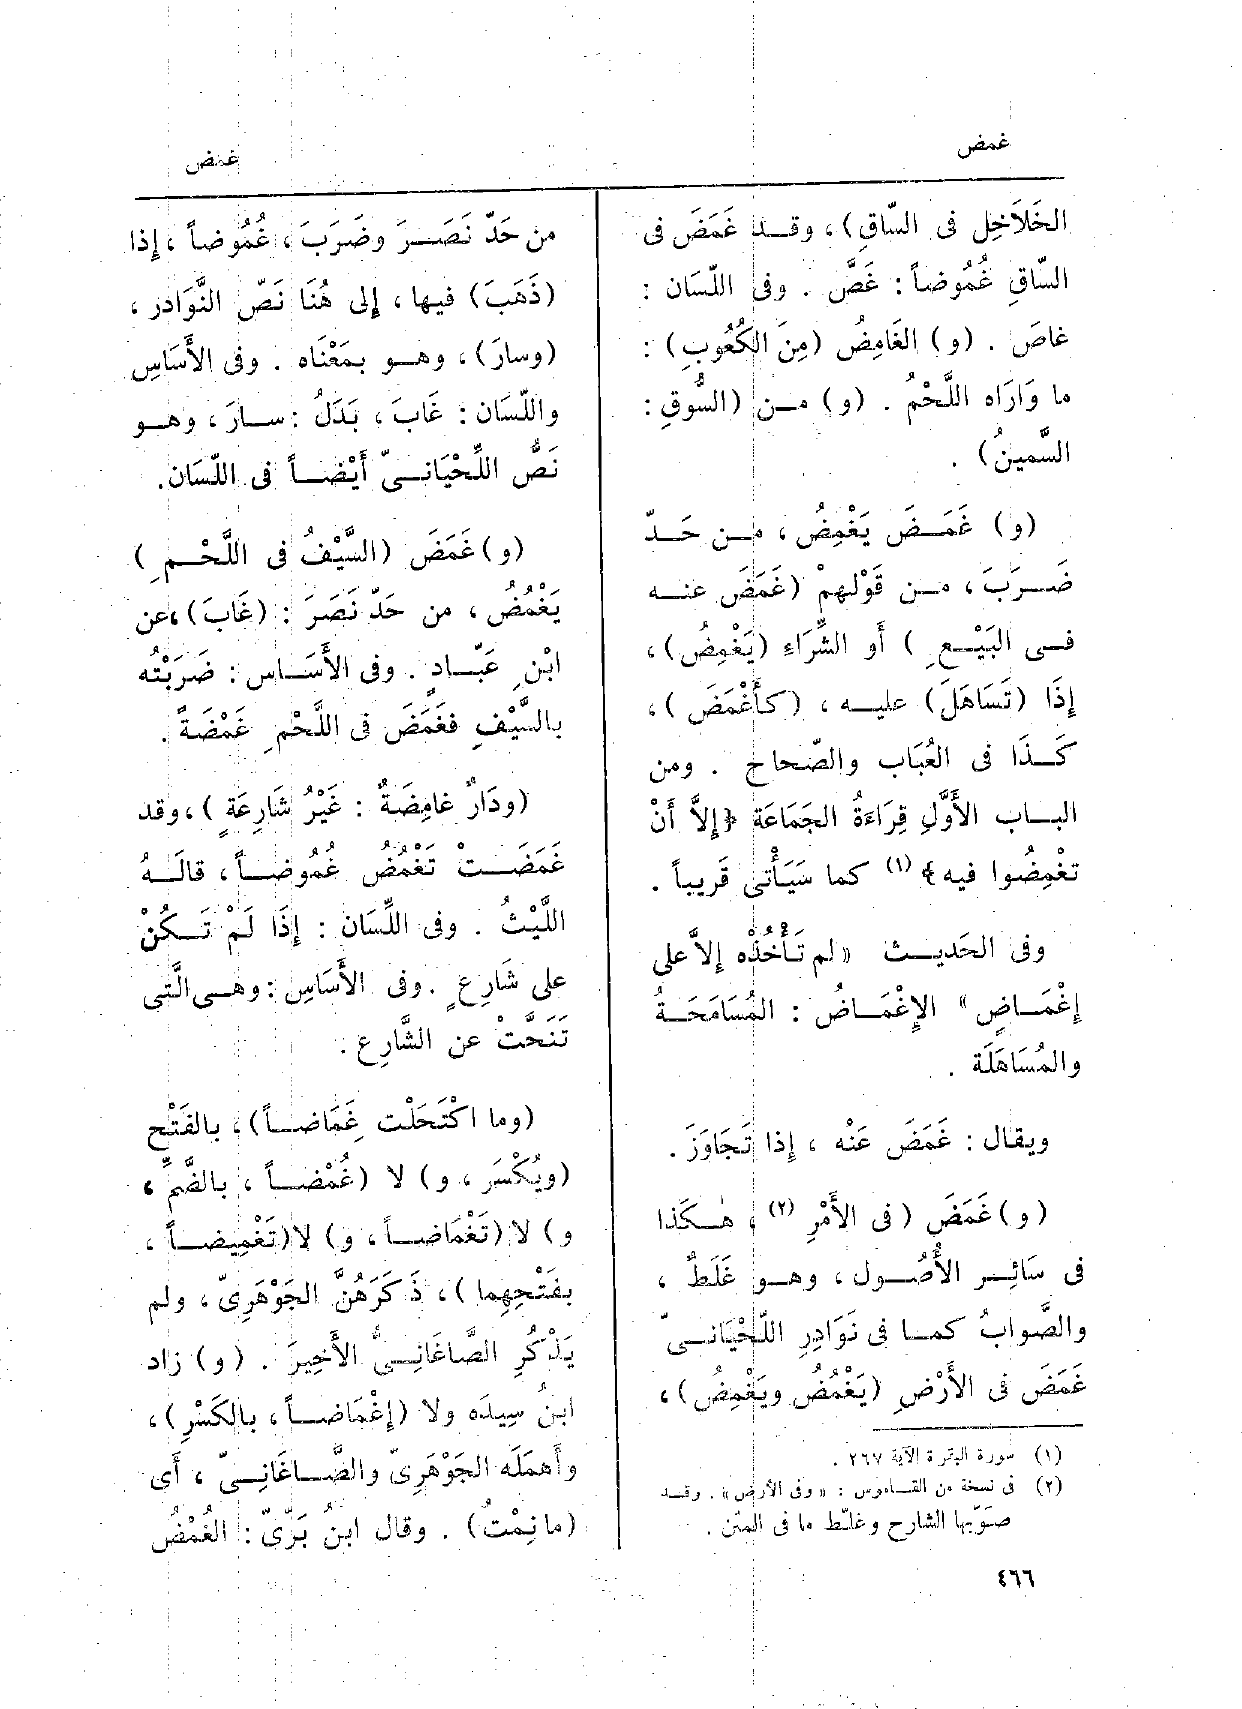 غمض
غمض
الخَلَاخِل فى السّاقِ) ، وقـد غَمَضَ فى
السّاقِ غُمُوضاً : غَصَّ . وفى اللّسَان :
غاصَ . (و) الغَامِضُ (مِنَ الكُعُوبِ) :
ما وَارَاه اللَّحْمُ . (و) مـن (السُّوقِ :
السَّمِينُ) .
(و) غَمَـضَ يَغْمِضُ ، مـن حَـدّ
ضَـرَبَ ، مـن قَوْلهِمْ (غَمَضَ عنـه
فـى البَيْـعِ ) أو الشِّرَاءِ (يَغْمِضُ) ،
إِذَا (تَسَاهَلَ) عليـه ، (كأَغْمَضَ ) ،
كَـذَا فى العُبَاب والصّحاح . ومن
البـاب الأَوَّلِ قِرَاءَةُ الجَمَاعَة ﴿إِلاَّ أَنْ
تَغْمِضُوا فيه﴾ (١) كما سَيَأْتى قَريباً .
وفى الحَديـث « لم تَأْخُذْه إِلاَّ على
إِغْمَـاضٍ » الإِغْمَـاضُ : المُسَامَحَـةُ
والمُسَاهَلَة .
ويقال : غَمَضَ عَنْه ، إذا تَجَاوَزَ .
(و) غَمَضَ (فى الأَمْرِ (٢) ، هٰـكَذا
فى سَائِـر الأُصُـول ، وهـو غَلَطٌ ،
والصَّوابُ كمـا فى نَوَادِرِ اللّحْيَانـىّ
غَمَضَ فى الأَرْضِ (يَغْمُضُ ويَغْمِضُ) ،
(١) سورة البقرة الآية ٢٦٧ .
(٢) فى نسخة من القـاموس : « وفى الأرض » . وقـد
صَوّبها الشارح وغلّط ما فى المتن .
من حَدّ نَصَـرَ وضَرَبَ ، غُمُوضاً ، إذا
(ذَهَبَ) فيها ، إلى هُنَا نَصّ النَّوَادر ،
(وسارَ) ، وهـو بمَعْنَاه . وفى الأَسَاسِ
واللّسَان : غَابَ ، بَدَلُ : سـارَ ، وهـو
نَصُّ اللِّحْيَانـىّ أَيْضـاً فى اللّسَان.
(و) غَمَضَ (السَّيْفُ فى اللَّحْـمِ )
يَغْمُضُ ، من حَدّ نَصَرَ : (غَابَ) ،عن
ابْنِ عَبّـادٍ . وفى الأَسَـاس : ضَرَبْتُه
بالسَّيْفِ فغَمَضَ فى اللَّحْمِ غَمْضَةً .
(ودَارٌ غامِضَةٌ : غَيْرُ شَارِعَةٍ ) ، وقد
غَمَضَـتْ تَغْمُضُ غُمُوضـاً ، قالَـهُ
اللَّيْثُ . وفى اللِّسَان : إِذَا لَمْ تَـكُنْ
على شَارِعٍ . وفى الأَسَاسِ : وهـى الَّتى
تَنَحَّتْ عن الشَّارِع .
(وما اكْتَحَلْت غِمَاضـاً) ، بالفَتْح
(ويُكْسَر ، و) لا (غُمْضـاً ، بالضَّمِّ ،
و) لا (تَغْمَاضـاً ، و) لا(تَغْمِيضـاً ،
بفَتْحِهِما ) ، ذَكَرَهُنَّ الجَوْهَرِىّ ، ولم
يَذْكُرِ الصَّاغَانِـىُّ الأَخِيرَ . (و) زاد
ابنُ سِيدَه ولا (إِغْمَاضـاً ، بالكَسْرِ) ،
وأَهمَلَه الجَوْهَرِىّ والصَّـاغَانِـىّ ، أَى
(ما نِمْتُ) . وقال ابنُ بَرِّىّ : الغُمْضُ
٤٦٦